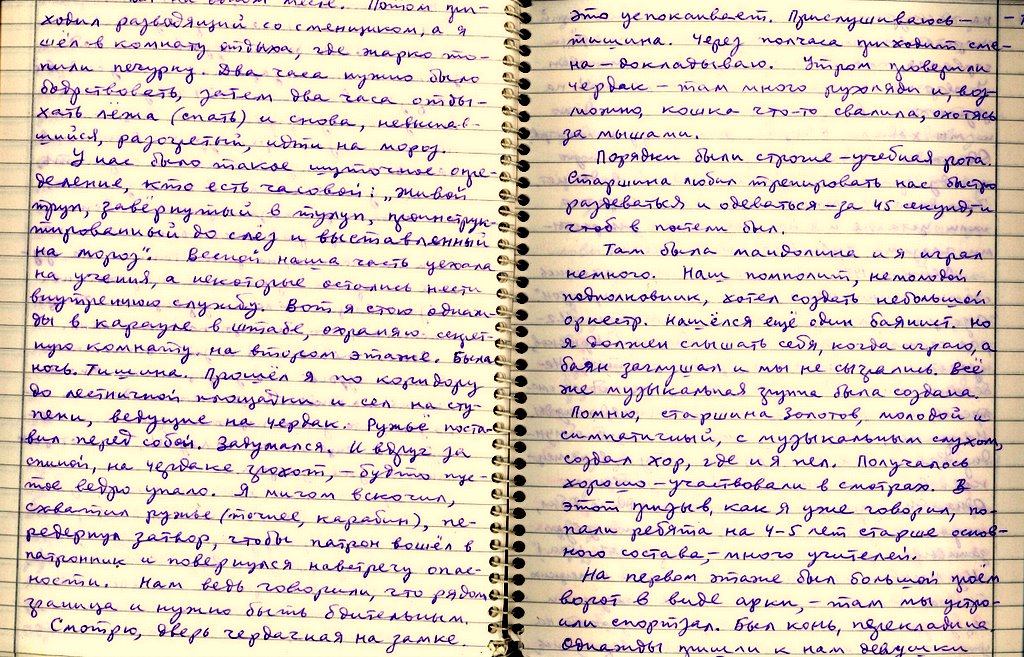 ходил разводящий со сменщиком, а я
шёл в комнату отдыха, где жарко то-
пили печурку. Два часа нужно было
бодрствовать, затем два часа отды-
хать лёжа (спать) и снова, невыспав-
шийся, разогретый, идти на мороз.
У нас было такое шуточное опре-
деление, кто есть часовой: „живой
труп, завёрнутый в тулуп, проинструк-
тированный до слёз и выставленный
на мороз". Весной наша часть уехала
на учения, а некоторые остались нести
внутреннюю службу. Вот я стою однаж-
ды в карауле в штабе, охраняю секрет-
ную комнату на втором этаже. Была
ночь. Тишина. Прошёл я по коридору
до лестничной площадки и сел на сту-
пени, ведущие на чердак. Ружьё поста-
вил перед собой. Задумался. И вдруг за
спиной, на чердаке грохот, – будто пус-
тое ведро упало. Я мигом вскочил,
схватил ружьё (точнее, карабин), пе-
редернул затвор, чтобы патрон вошёл в
патронник и повернулся навстречу опас-
ности. Нам ведь говорили, что рядом
граница и нужно быть бдительным.
Смотрю, дверь чердачная на замке.
это успокаивает. Прислушиваюсь –
тишина. Через полчаса приходит сме-
на – докладываю. Утром проверили
чердак – там много рухляди и, воз-
можно, кошка что-то свалила, охотясь
за мышами.
Порядки были строгие – учебная рота.
Старшина любил тренировать нас быстро
раздеваться и одеваться – за 45 секунд, и
чтоб в постели был.
Там была мандолина и я играл
немного. Наш помполит, немолодой
подполковник, хотел создать небольшой
оркестр. Нашёлся ещё один баянист. Но
я должен слышать себя, когда играю, а
баян заглушал и мы не сыгрались. Всё
же музыкальная группа была создана.
Помню, старшина Золотов, молодой и
симпатичный, с музыкальным слухом,
создал хор, где и я пел. Получалось
хорошо – участвовали в смотрах. В
этот призыв, как я уже говорил, по-
пали ребята на 4-5 лет старше основ-
ного состава, – много учителей.
На первом этаже был большой проём
ворот в виде арки, – там мы устро-
или спортзал. Был конь, перекладина.
Однажды пришли к нам девушки